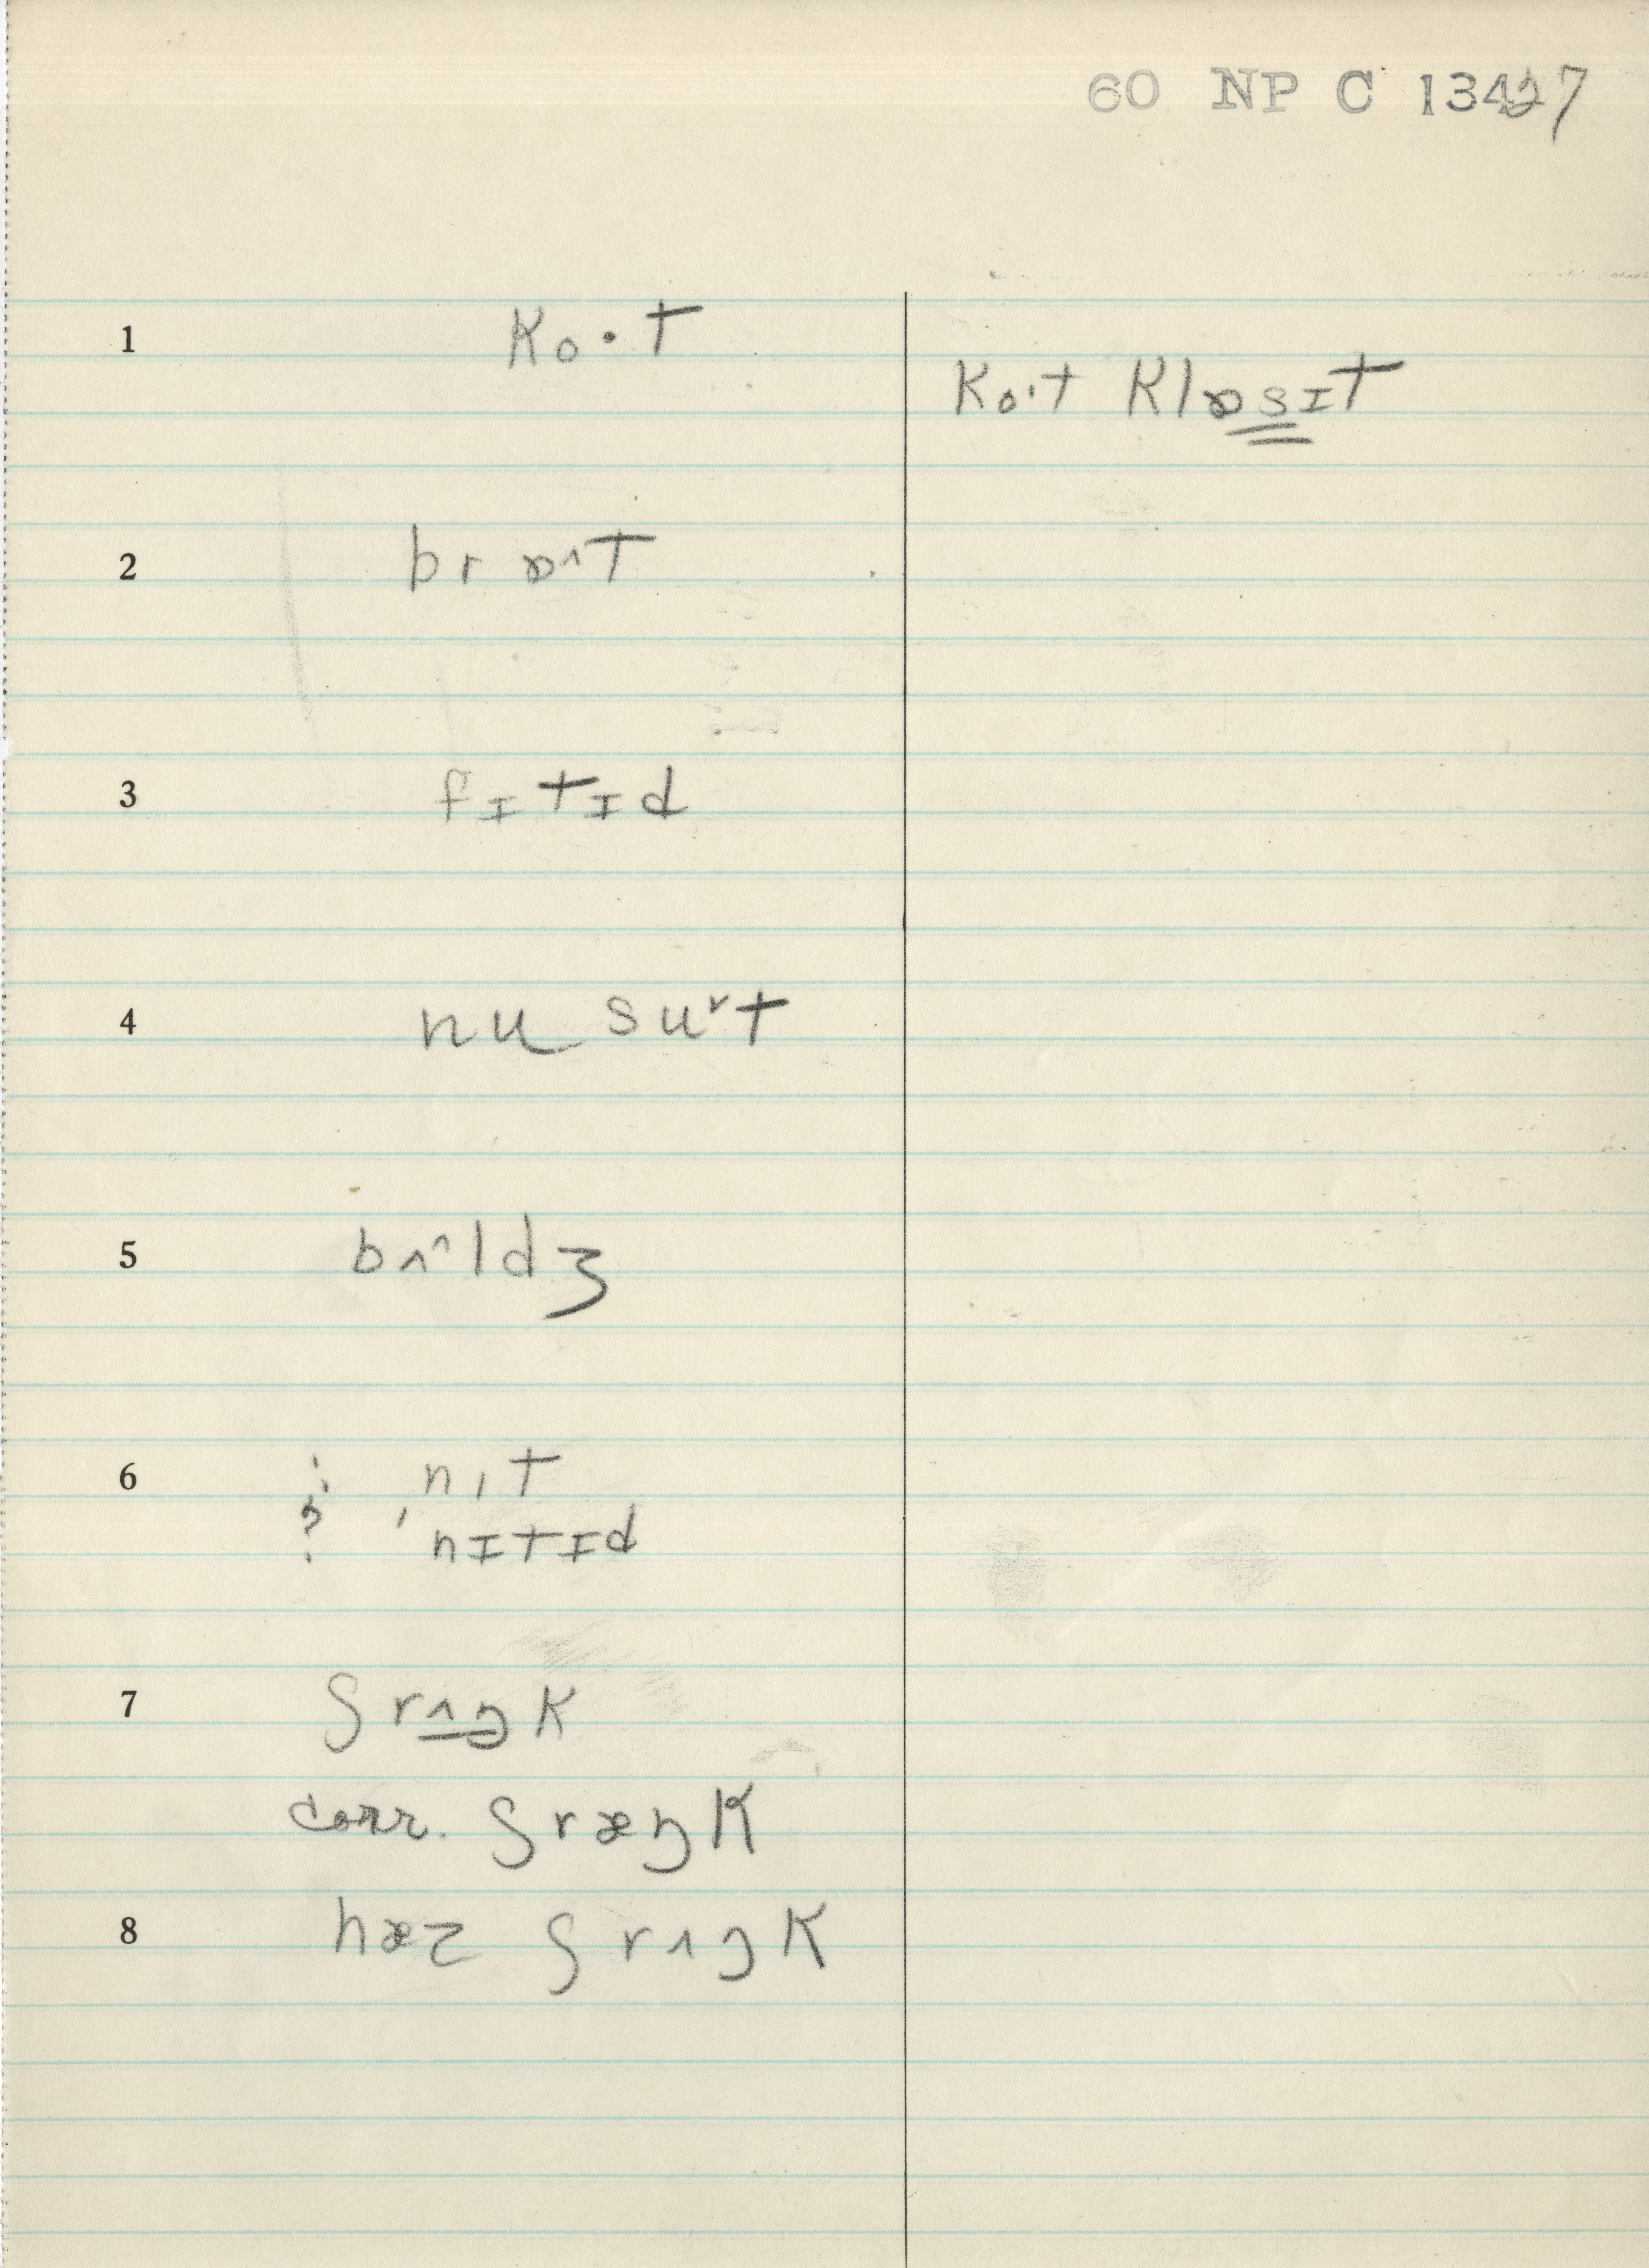 60 NP C 13427
1 ko·t
ko·t klɒsɪt
2 brɒ^t
3 fɪtɪd
4 nu suᵛt
5 bʌ^ldʒ
6 ? nɪt
? 'nɪtɪd
7 ʃrʌŋk
corr. ʃræŋk
8 hæz ʃrʌŋk